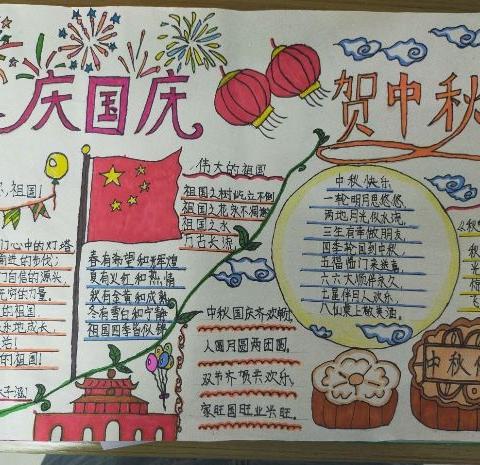 庆国庆
贺中秋
祖国!
们心中的灯塔
前进的步伐;
门自信的源泉,
无穷的力量。
的祖国
乐地成长,
的祖国!
春有希望和辉煌
夏有火红和热情
秋有金黄和成熟
冬有雪白和宁静
祖国四季皆似锦
伟大的祖国
祖国之树屹立不倒
祖国之花永不凋谢
祖国之水
万古长流
中秋国庆齐欢畅,
人圆月圆两团圆。
双节齐颂共欢乐,
家旺国旺业兴旺。
中秋快乐
一轮明月思悠悠,
两地月光似水流,
三生有幸做朋友,
四季轮回到中秋,
五福临门来送喜,
六六大顺伴永久,
七星伴日人欢乐,
八仙桌上敬美酒。
中秋